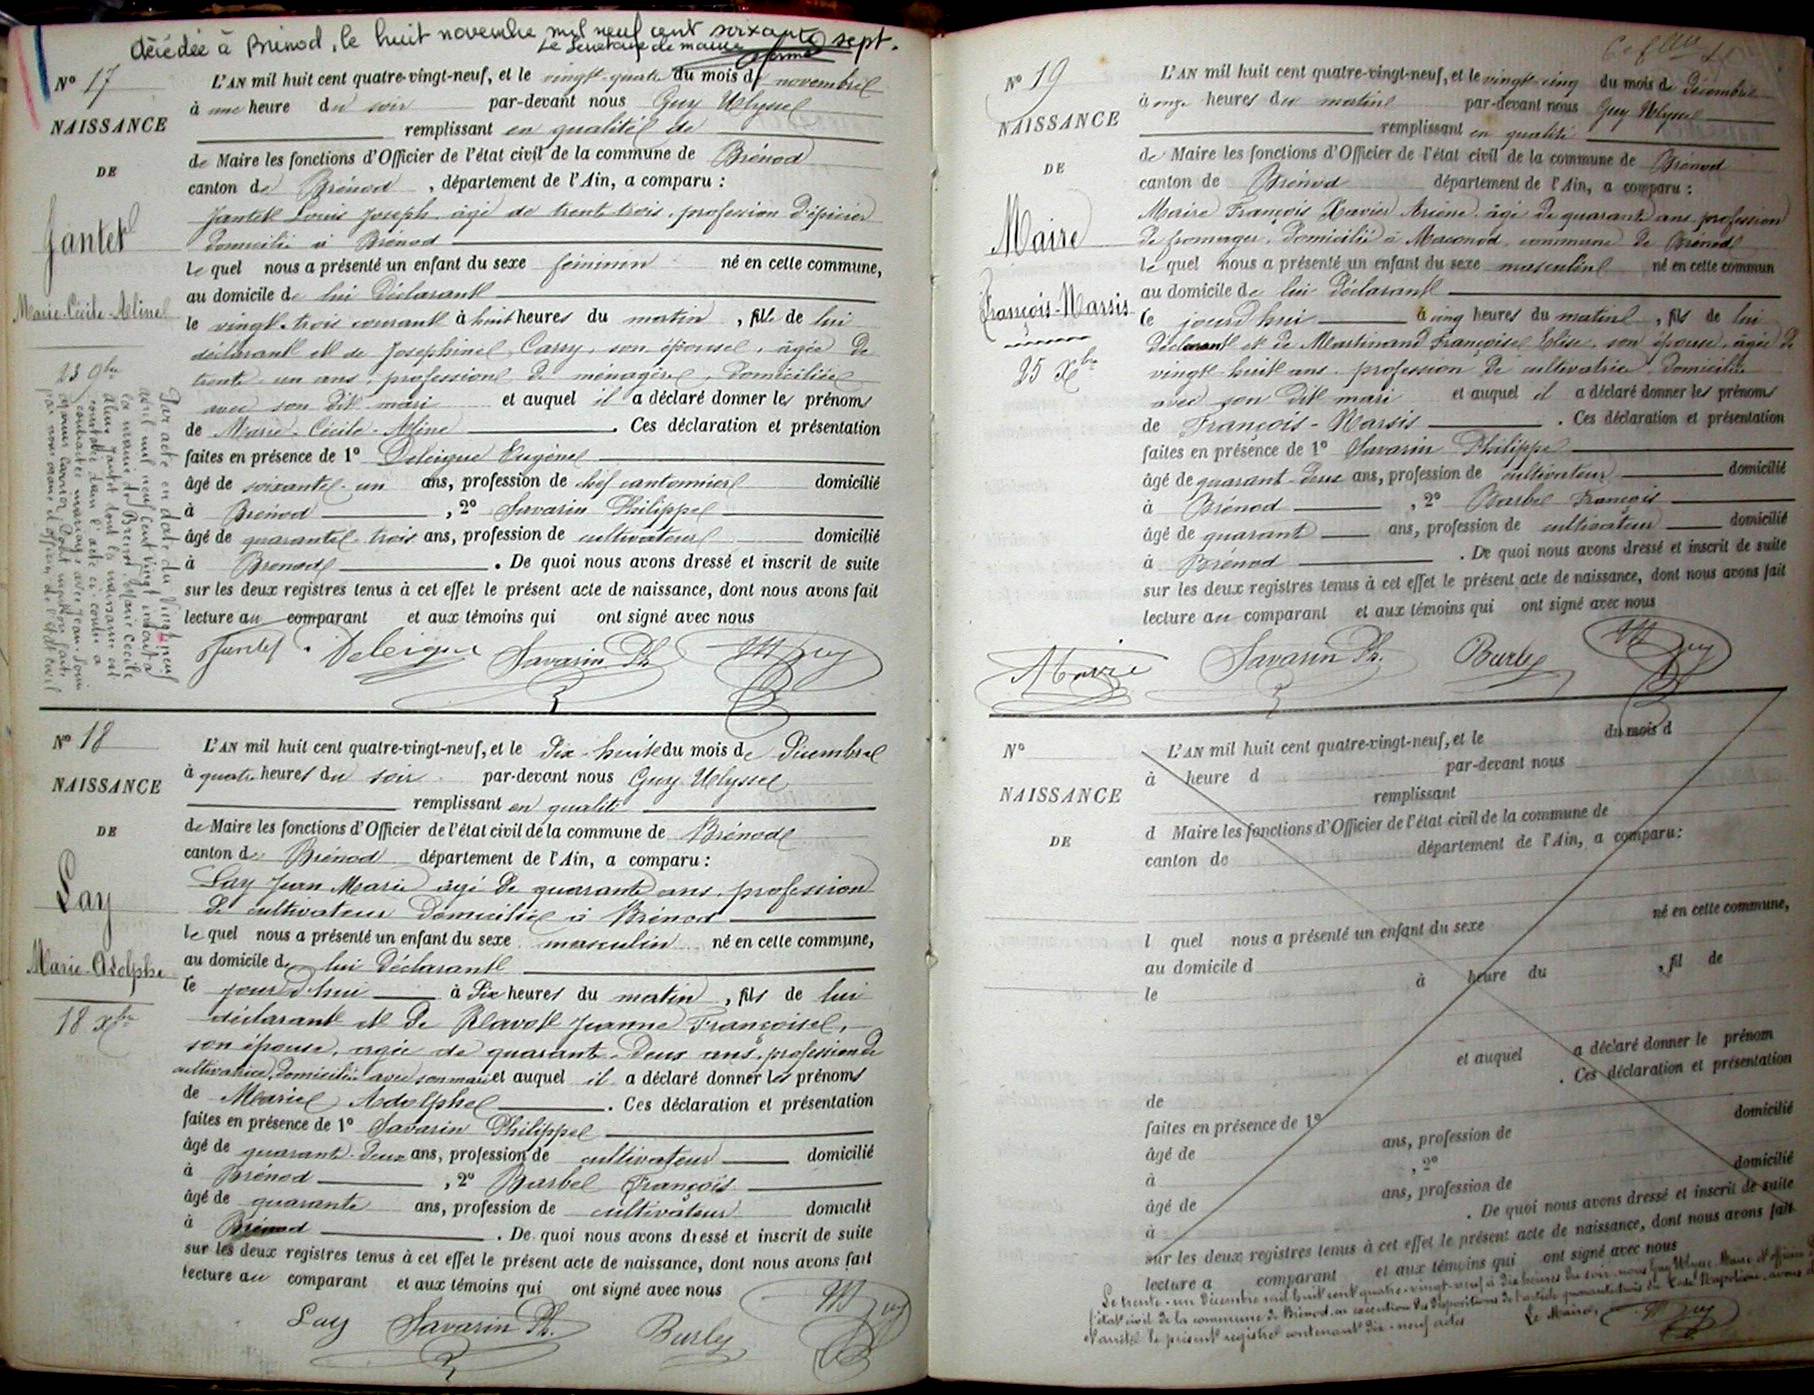 décédée à Brénod, le huit novembre mil neuf cent soixante sept.
Le Secrétaire de mairie
N° 17
NAISSANCE
DE
Jantet
Marie-Cécile-Aline
23 9bre
Par acte en date du vingt neuf
avril mil neuf cent vingt
la mairie de Brénod Marie Cécile
Aline Jantet dont la naissance est
constatée dans l'acte ci-contre a
contracté mariage avec Jean-Louis
par nous maire et officier de l'état civil
L'AN mil huit cent quatre-vingt-neuf, et le vingt-quatre du mois de novembre
à une heure du soir par-devant nous Guy Ulysse
remplissant en qualité de
de Maire les fonctions d'Officier de l'état civil de la commune de Brénod
canton de Brénod, département de l'Ain, a comparu :
Jantet Louis Joseph, âgé de trente-trois, profession d'épicier
domicilié à Brénod
le quel nous a présenté un enfant du sexe féminin né en cette commune,
au domicile de lui déclarant
le vingt-trois courant à huit heures du matin, fille de lui
déclarant et de Josephine Carry, son épouse, âgée de
trente-un ans, profession de ménagère, domiciliée
avec son dit mari et auquel il a déclaré donner les prénoms
de Marie-Cécile-Aline. Ces déclaration et présentation
faites en présence de 1° Deleigue Eugène
âgé de soixante-un ans, profession de chef cantonnier domicilié
à Brénod, 2° Savarin Philippe
âgé de quarante-trois ans, profession de cultivateur domicilié
à Brénod. De quoi nous avons dressé et inscrit de suite
sur les deux registres tenus à cet effet le présent acte de naissance, dont nous avons fait
lecture au comparant et aux témoins qui ont signé avec nous
Jantet Deleigue Savarin Ph. Guy
N° 18
NAISSANCE
DE
Lay
Marie-Adolphe
18 Xbre
L'AN mil huit cent quatre-vingt-neuf, et le dix-huit du mois de décembre
à quatre heures du soir par-devant nous Guy Ulysse
remplissant en qualité
de Maire les fonctions d'Officier de l'état civil de la commune de Brénod
canton de Brénod département de l'Ain, a comparu :
Lay Jean Marie âgé de quarante ans, profession
de cultivateur domicilié à Brénod
le quel nous a présenté un enfant du sexe masculin né en cette commune,
au domicile de lui déclarant
le jourd'hui à dix heures du matin, fils de lui
déclarant et de Ravot Jeanne Françoise,
son épouse, agée de quarante-deux ans, profession de
cultivatrice, domiciliée avec son mari et auquel il a déclaré donner les prénoms
de Marie Adolphe. Ces déclaration et présentation
faites en présence de 1° Savarin Philippe
âgé de quarante-deux ans, profession de cultivateur domicilié
à Brénod, 2° Burbel François
âgé de quarante ans, profession de cultivateur domicilié
à Brénod. De quoi nous avons dressé et inscrit de suite
sur les deux registres tenus à cet effet le présent acte de naissance, dont nous avons fait
lecture au comparant et aux témoins qui ont signé avec nous
Lay Savarin Ph. Guy
N° 19
NAISSANCE
DE
Maire
François-Marsis
25 Xbre
L'AN mil huit cent quatre-vingt-neuf, et le vingt-cinq du mois de Décembre
à onze heures du matin par-devant nous Guy Ulysse
remplissant en qualité
de Maire les fonctions d'Officier de l'état civil de la commune de Brénod
canton de Brénod département de l'Ain, a comparu :
Maire François Xavier Arsène, âgé de quarante ans, profession
de fromager, domicilié à Maconod, commune de Brénod
le quel nous a présenté un enfant du sexe masculin né en cette commun
au domicile de lui déclarant
le jourd'hui à cinq heures du matin, fils de lui
déclarant et de Martinand Françoise Elise, son épouse, âgée de
vingt-huit ans, profession de cultivatrice, domiciliée
avec son dit mari et auquel il a déclaré donner les prénoms
de François-Marsis. Ces déclaration et présentation
faites en présence de 1° Savarin Philippe
âgé de quarant-deux ans, profession de cultivateur domicilié
à Brénod, 2° Burbel François
âgé de quarante ans, profession de cultivateur domicilié
à Brénod. De quoi nous avons dressé et inscrit de suite
sur les deux registres tenus à cet effet le présent acte de naissance, dont nous avons fait
lecture au comparant et aux témoins qui ont signé avec nous
Maire Savarin Ph. Guy
N°
NAISSANCE
DE
L'AN mil huit cent quatre-vingt-neuf, et le du mois d
à heure d par-devant nous
remplissant
d Maire les fonctions d'Officier de l'état civil de la commune de
canton de département de l'Ain, a comparu :
l quel nous a présenté un enfant du sexe né en cette commune,
au domicile d
le à heure du , fil de
et auquel a déclaré donner le prénom
de . Ces déclaration et présentation
faites en présence de 1°
âgé de ans, profession de domicilié
à , 2°
âgé de ans, profession de domicilié
à . De quoi nous avons dressé et inscrit de suite
sur les deux registres tenus à cet effet le présent acte de naissance, dont nous avons fait
lecture a comparant et aux témoins qui ont signé avec nous
Le trente-un décembre mil huit cent quatre-vingt-neuf à dix heures du soir, nous Guy Ulysse Maire et officier de
l'état civil de la commune de Brénod, en exécution des dispositions de l'article quarante-trois du Code Napoléon, avons clos
et arrêté le présent registre contenant dix-neuf actes
Le Maire, Guy